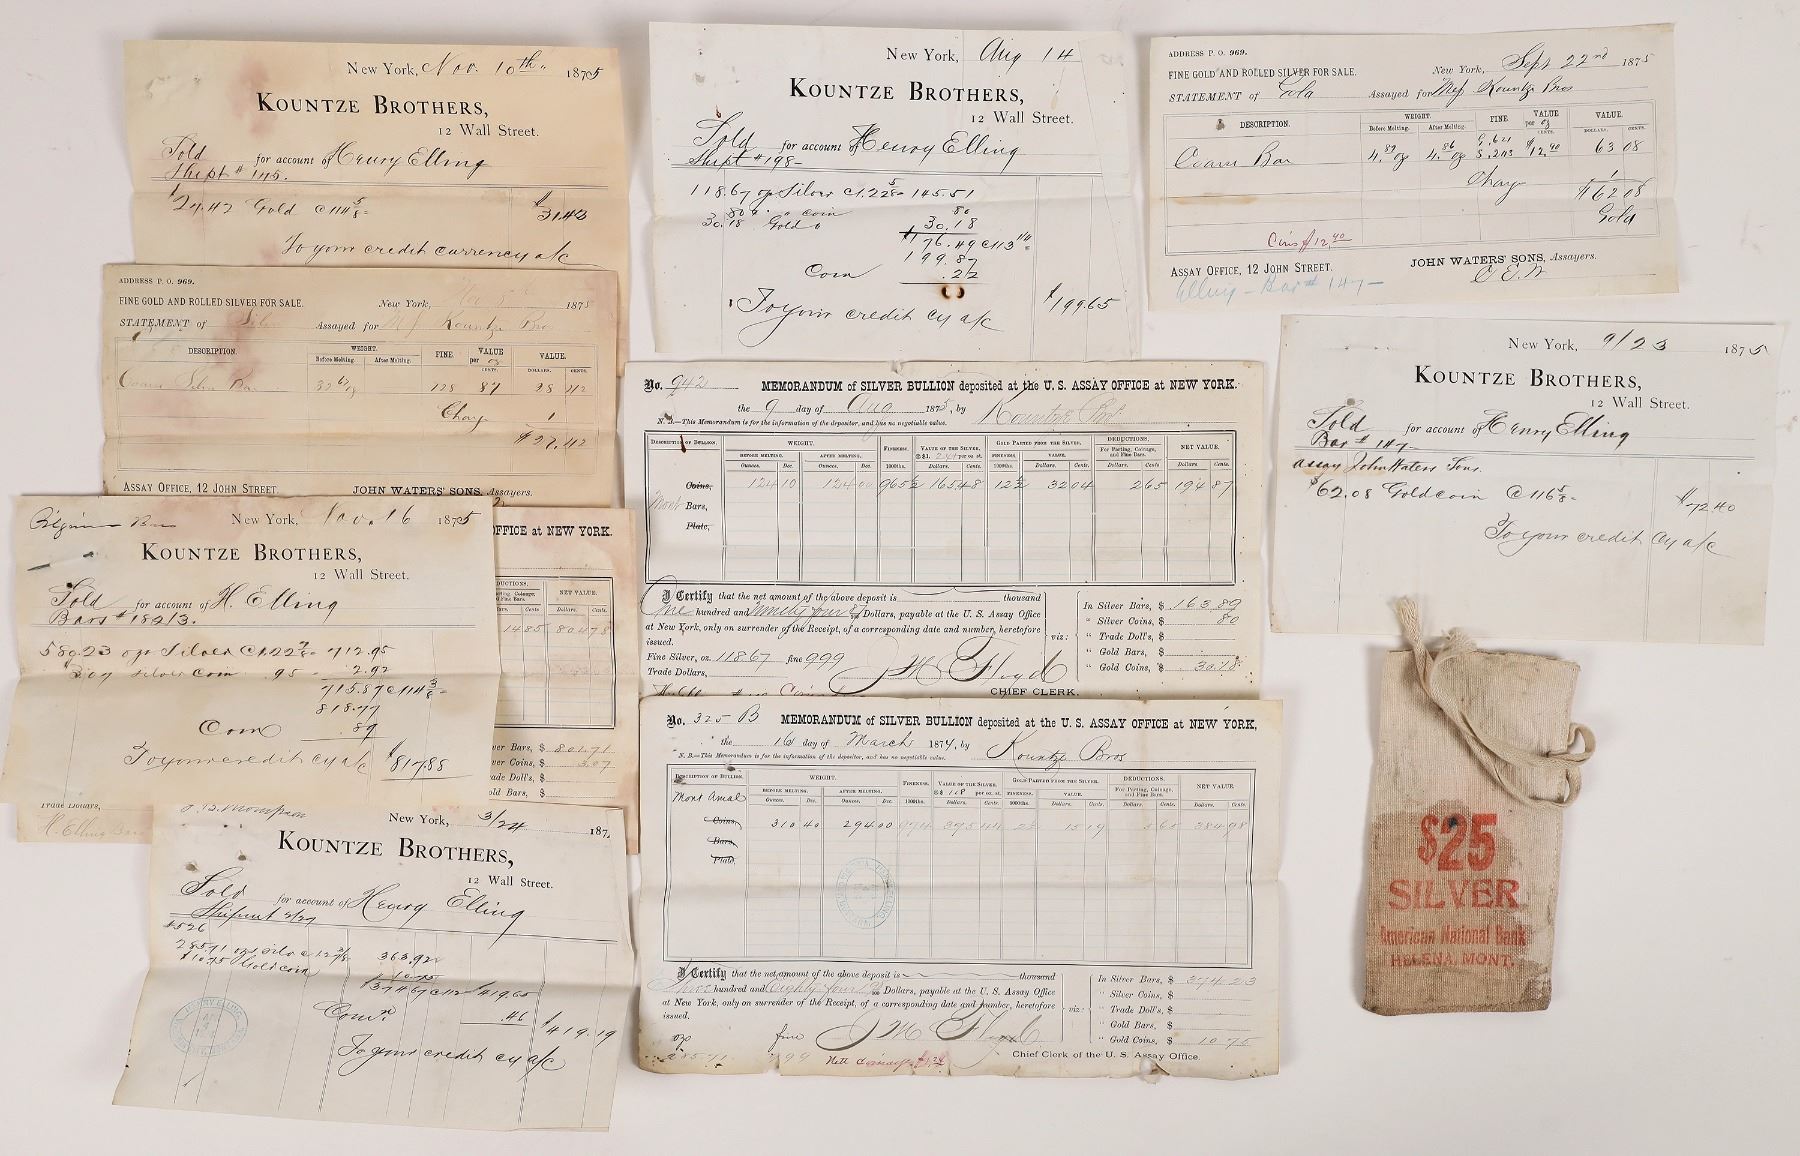 New York, Nov. 10th 1875
KOUNTZE BROTHERS,
12 Wall Street.
Sold for account of Henry Elling
Shipt # 145.
$27.42 Gold @ 114 5/8 =
$31.43
To your credit currency a/c
ADDRESS P. O. 969.
FINE GOLD AND ROLLED SILVER FOR SALE. New York, 1875
STATEMENT of Silver Assayed for Kountze Bros
DESCRIPTION. WEIGHT. Before Melting. After Melting. FINE. VALUE per oz CENTS. VALUE. DOLLARS. CENTS.
Silver Bar 128 87 28 42
Charg 1
$27.42
ASSAY OFFICE, 12 JOHN STREET. JOHN WATERS' SONS, Assayers.
New York, Nov. 16 1875
KOUNTZE BROTHERS,
12 Wall Street.
Sold for account of H. Elling
Bars # 189/3.
580.23 ozs Silver @ 122 7/8 = 712.95
3.07 Silver Coin .95 2.92
715.87 @ 114 3/8 =
818.77
Com .89
To your credit cy a/c $817.88
OFFICE at NEW YORK.
NET VALUE.
14 85 804 78
Bars, $ 801.71
Coins, $ 3.07
Doll's, $
Bars, $
Trade Dollars,
H. Elling Bar
New York, 3/24 187
KOUNTZE BROTHERS,
12 Wall Street.
Sold for account of Henry Elling
Shipment 2/27
#526
285.71 ozs Silv @ 127 3/8 363.92
$10.75 Gold coin 10.75
$374.67 @ 112 $419.65
Com. .46
$419.19
To your credit cy a/c
New York, Aug 14
KOUNTZE BROTHERS,
12 Wall Street.
Sold for account of Henry Elling
Shipt # 198-
118.67 ozs Silver @ 122 5/8 = 145.51
80 " " coin 80
30.18 Gold 30.18
$176.49 @ 113 1/4 =
199.87
Com .22
To your credit cy a/c $199.65
No. 942 MEMORANDUM of SILVER BULLION deposited at the U. S. ASSAY OFFICE at NEW YORK.
the 9 day of Aug 1875, by Kountze Bros
N. B.—This Memorandum is for the information of the depositor, and has no negotiable value.
DESCRIPTION OF BULLION. WEIGHT. FINENESS. VALUE OF THE SILVER. GOLD PARTED FROM THE SILVER. DEDUCTIONS. NET VALUE.
BEFORE MELTING. AFTER MELTING. FINENESS. VALUE. For Parting, Coinage, and Fine Bars.
Ounces. Dec. Ounces. Dec. 1000ths. Dollars. Cents. 1000ths. Dollars. Cents. Dollars. Cents. Dollars. Cents.
Coins, 124 10 124 00 965½ 165 48 12½ 32 04 2 65 194 87
Mont Bars,
Plate,
I Certify that the net amount of the above deposit is thousand
One hundred and Ninety four 87 Dollars, payable at the U. S. Assay Office
at New York, only on surrender of the Receipt, of a corresponding date and number, heretofore
issued.
Fine Silver, oz. 118.67 fine 999
Trade Dollars,
J M Floyd
CHIEF CLERK.
viz:
In Silver Bars, $ 163.89
" Silver Coins, $ 80
" Trade Doll's, $
" Gold Bars, $
" Gold Coins, $ 30.18
No. 325 B MEMORANDUM of SILVER BULLION deposited at the U. S. ASSAY OFFICE at NEW YORK,
the 16 day of March 1874, by Kountze Bros
N. B.—This Memorandum is for the information of the depositor, and has no negotiable value.
DESCRIPTION OF BULLION. WEIGHT. FINENESS. VALUE OF THE SILVER. GOLD PARTED FROM THE SILVER. DEDUCTIONS. NET VALUE.
Mont Amal BEFORE MELTING. AFTER MELTING. @ $ 118 per oz. st. FINENESS. VALUE. For Parting, Coinage, and Fine Bars.
Ounces. Dec. Ounces. Dec. 1000ths. Dollars. Cents. 1000ths. Dollars. Cents. Dollars. Cents. Dollars. Cents.
Coins, 310 40 294 00 974 375 44 2½ 15 19 5 65 384 98
Bars,
Plate,
I Certify that the net amount of the above deposit is thousand
Three hundred and Eighty four Dollars, payable at the U. S. Assay Office
at New York, only on surrender of the Receipt, of a corresponding date and number, heretofore
issued.
ozs fine J M Floyd
285.71 999 Nett
Chief Clerk of the U. S. Assay Office.
viz:
In Silver Bars, $ 374 23
" Silver Coins, $
" Trade Doll's, $
" Gold Bars, $
" Gold Coins, $ 10 75
ADDRESS P. O. 969.
FINE GOLD AND ROLLED SILVER FOR SALE. New York, Sept 22nd 1875
STATEMENT of Gold Assayed for Kountze Bros
DESCRIPTION. WEIGHT. Before Melting. After Melting. FINE. VALUE per oz CENTS. VALUE. DOLLARS. CENTS.
Bar 4.89 oz 4.86 oz G .621 S .203 $12.40 63 08
Charg 1
$62.08
Gold
ASSAY OFFICE, 12 JOHN STREET. JOHN WATERS' SONS, Assayers.
Elling - Bar # 147-
New York, 9/23 1875
KOUNTZE BROTHERS,
12 Wall Street.
Sold for account of Henry Elling
Bar # 147
assay John Waters Sons.
$62.08 Gold coin @ 116 5/8 = $72.40
To your credit cy a/c
$25
SILVER
American National Bank
HELENA, MONT.